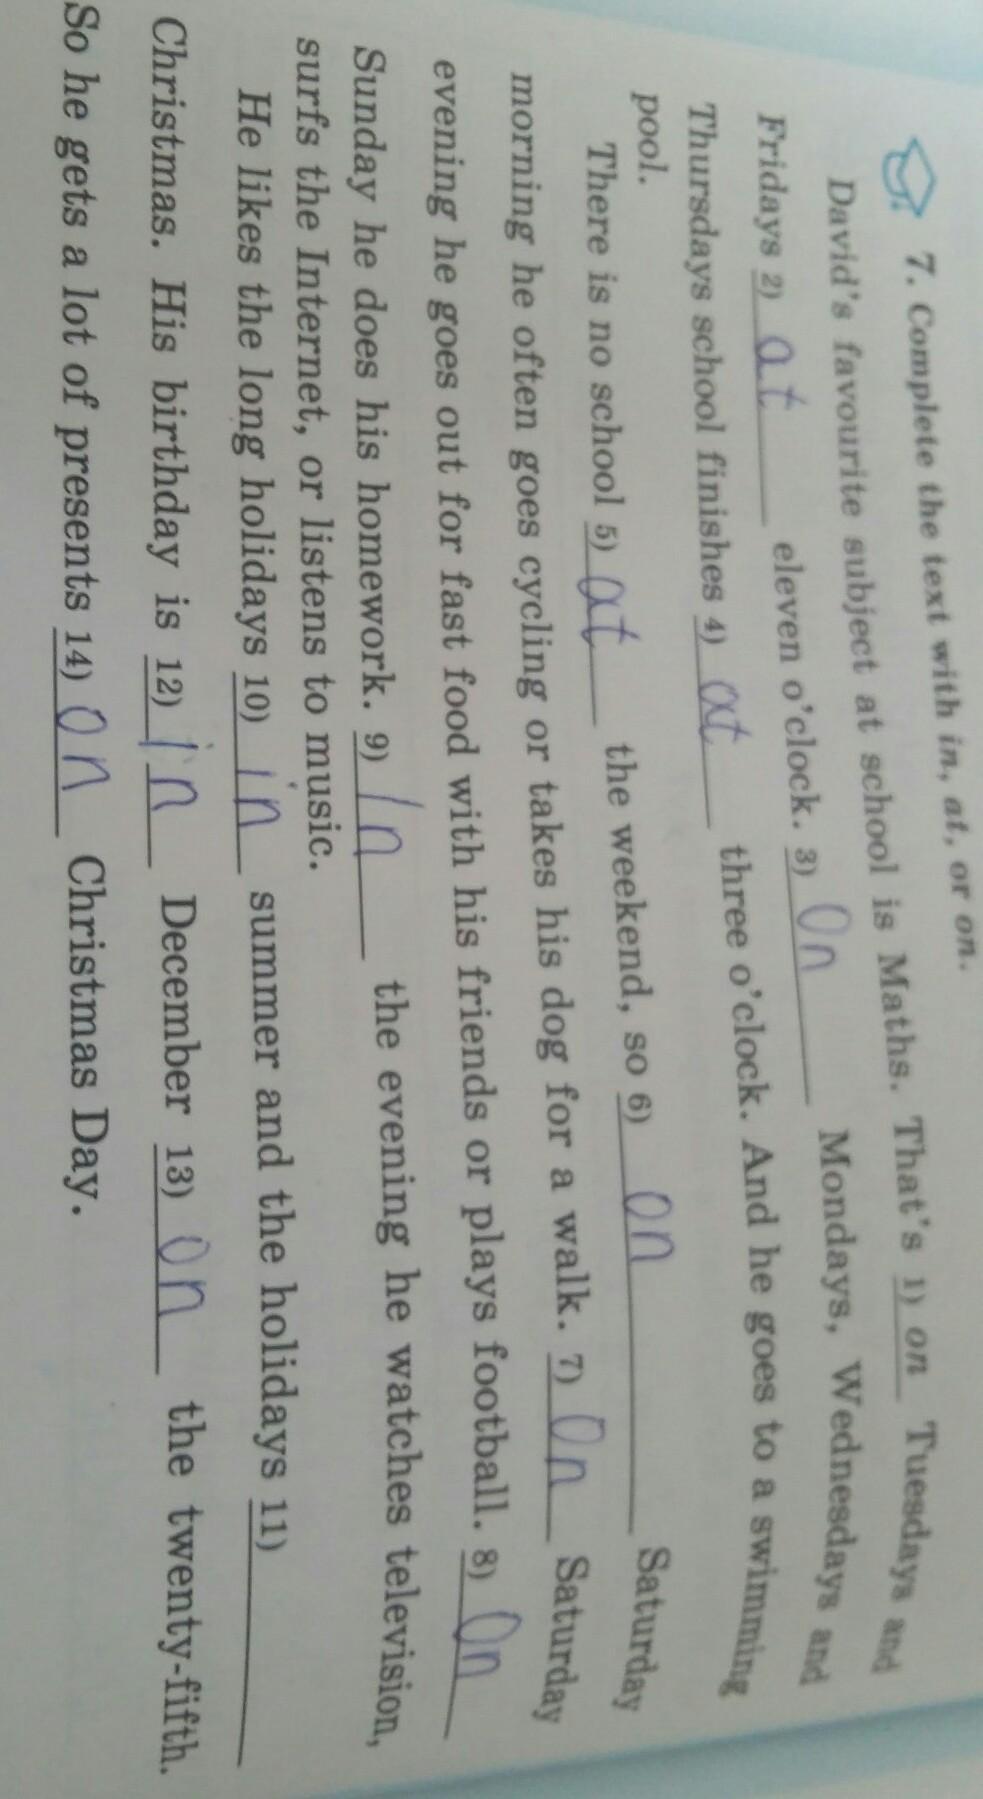 7. Complete the text with in, at, or on.
David's favourite subject at school is Maths. That's 1) on Tuesdays and
Fridays 2) at eleven o'clock. 3) On Mondays, Wednesdays and
Thursdays school finishes 4) at three o'clock. And he goes to a swimming
pool.
There is no school 5) at the weekend, so 6) on Saturday
morning he often goes cycling or takes his dog for a walk. 7) On Saturday
evening he goes out for fast food with his friends or plays football. 8) On
Sunday he does his homework. 9) In the evening he watches television,
surfs the Internet, or listens to music.
He likes the long holidays 10) in summer and the holidays 11)
Christmas. His birthday is 12) in December 13) on the twenty-fifth.
So he gets a lot of presents 14) on Christmas Day.